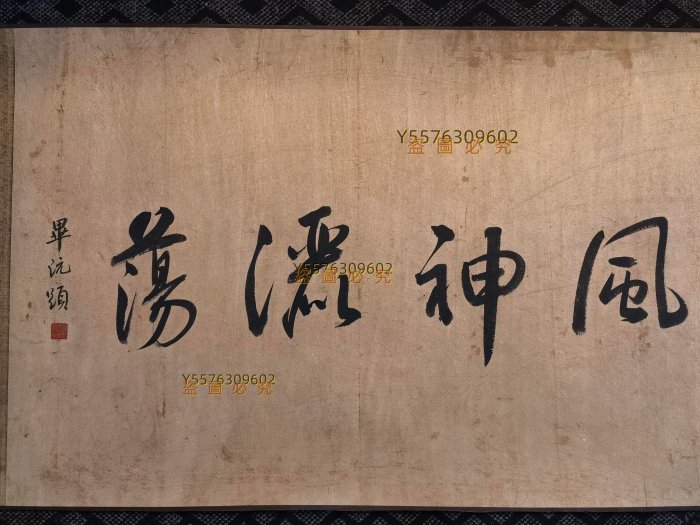 風神灑蕩
畢沅題
Y5576309602
盗圖必究
Y5576309602
盗圖必究
Y5576309602
盗圖必究